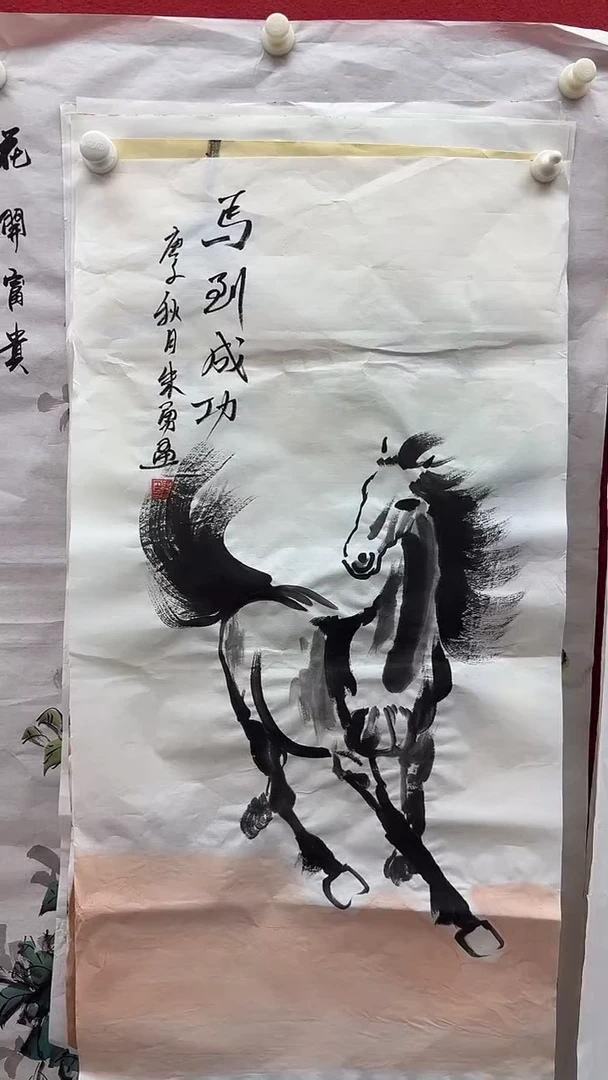 馬到成功
庚子秋月朱勇画
花開富貴